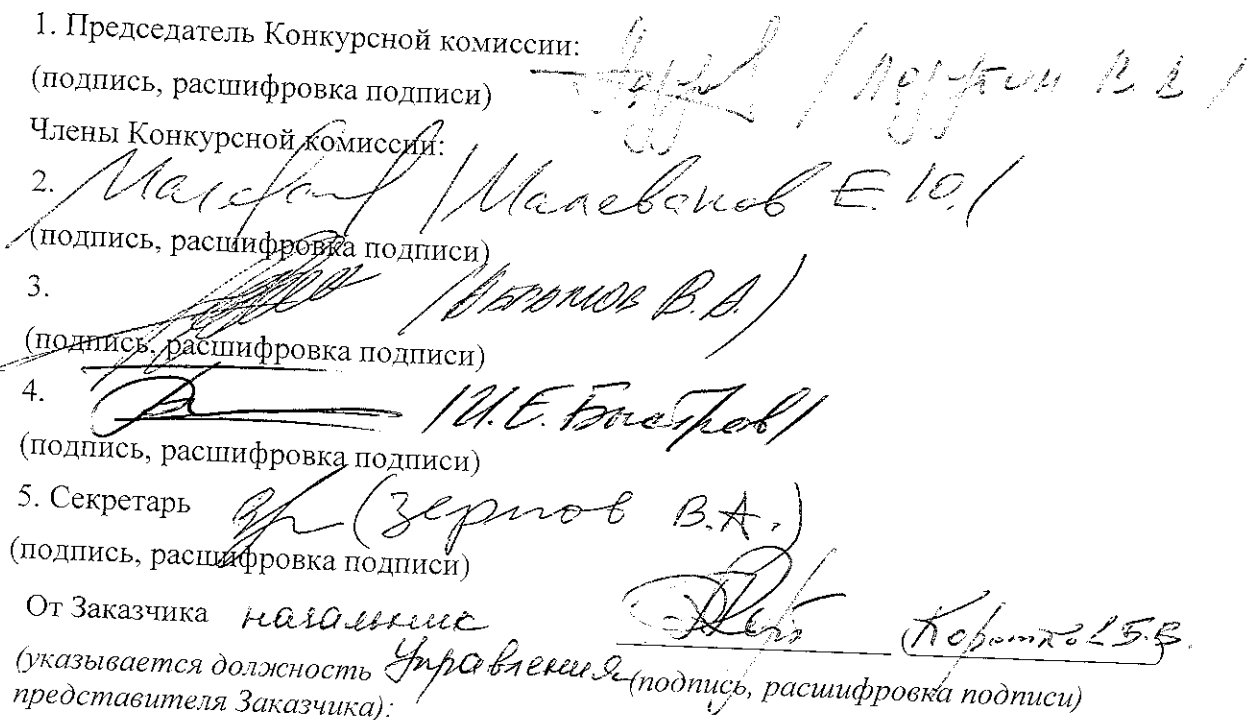 1. Председатель Конкурсной комиссии:
(подпись, расшифровка подписи)
Члены Конкурсной комиссии:
2. /Малеванов Е.Ю./
(подпись, расшифровка подписи)
3. В.А.)
(подпись, расшифровка подписи)
4. /И.Е. Быстров/
(подпись, расшифровка подписи)
5. Секретарь (Зернов В.А.)
(подпись, расшифровка подписи)
От Заказчика начальник
(указывается должность Управления (подпись, расшифровка подписи)
представителя Заказчика):